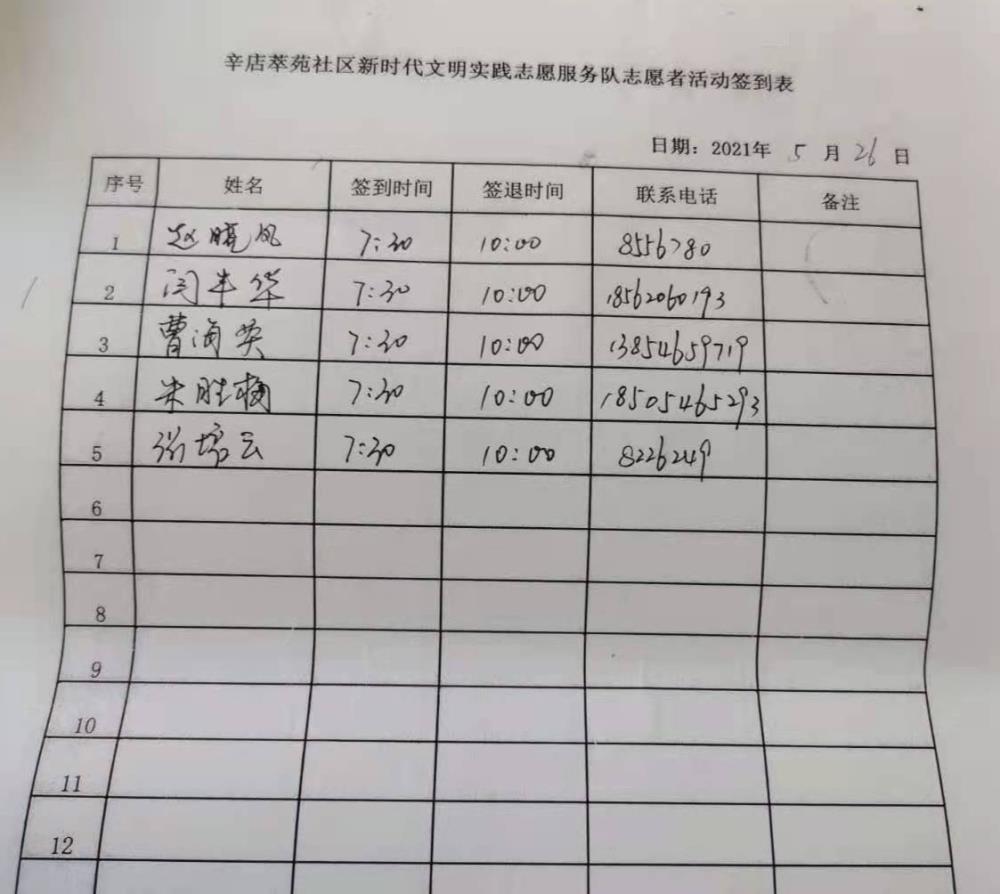 辛店萃苑社区新时代文明实践志愿服务队志愿者活动签到表
日期：2021年 5 月 26 日
序号 姓名 签到时间 签退时间 联系电话 备注
1 赵晓风 7:30 10:00 8556780
2 闫丰华 7:30 10:00 18562060193
3 曹海英 7:30 10:00 13854659719
4 朱胜楠 7:30 10:00 18505465293
5 张培云 7:30 10:00 8226249
6
7
8
9
10
11
12